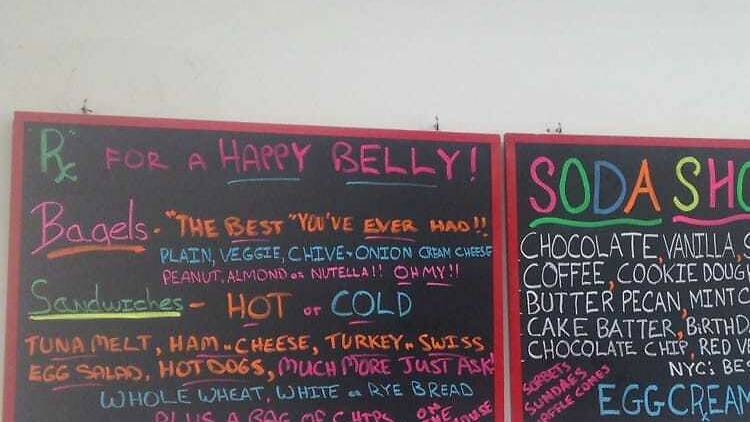 Rx FOR A HAPPY BELLY!
Bagels - "THE BEST" YOU'VE EVER HAD!!
PLAIN, VEGGIE, CHIVE + ONION CREAM CHEESE
PEANUT, ALMOND or NUTELLA!! OH MY!!
Sandwiches - HOT or COLD
TUNA MELT, HAM + CHEESE, TURKEY + SWISS
EGG SALAD, HOT DOGS, MUCH MORE JUST ASK!
WHOLE WHEAT, WHITE or RYE BREAD
PLUS A BAG OF CHIPS ON THE HOUSE
SODA SHO
CHOCOLATE, VANILLA, S
COFFEE, COOKIE DOUG
BUTTER PECAN, MINT C
CAKE BATTER, BIRTHD
CHOCOLATE CHIP, RED VE
NYC's BES
SORBETS
SUNDAES
WAFFLE CONES
EGG CREAM